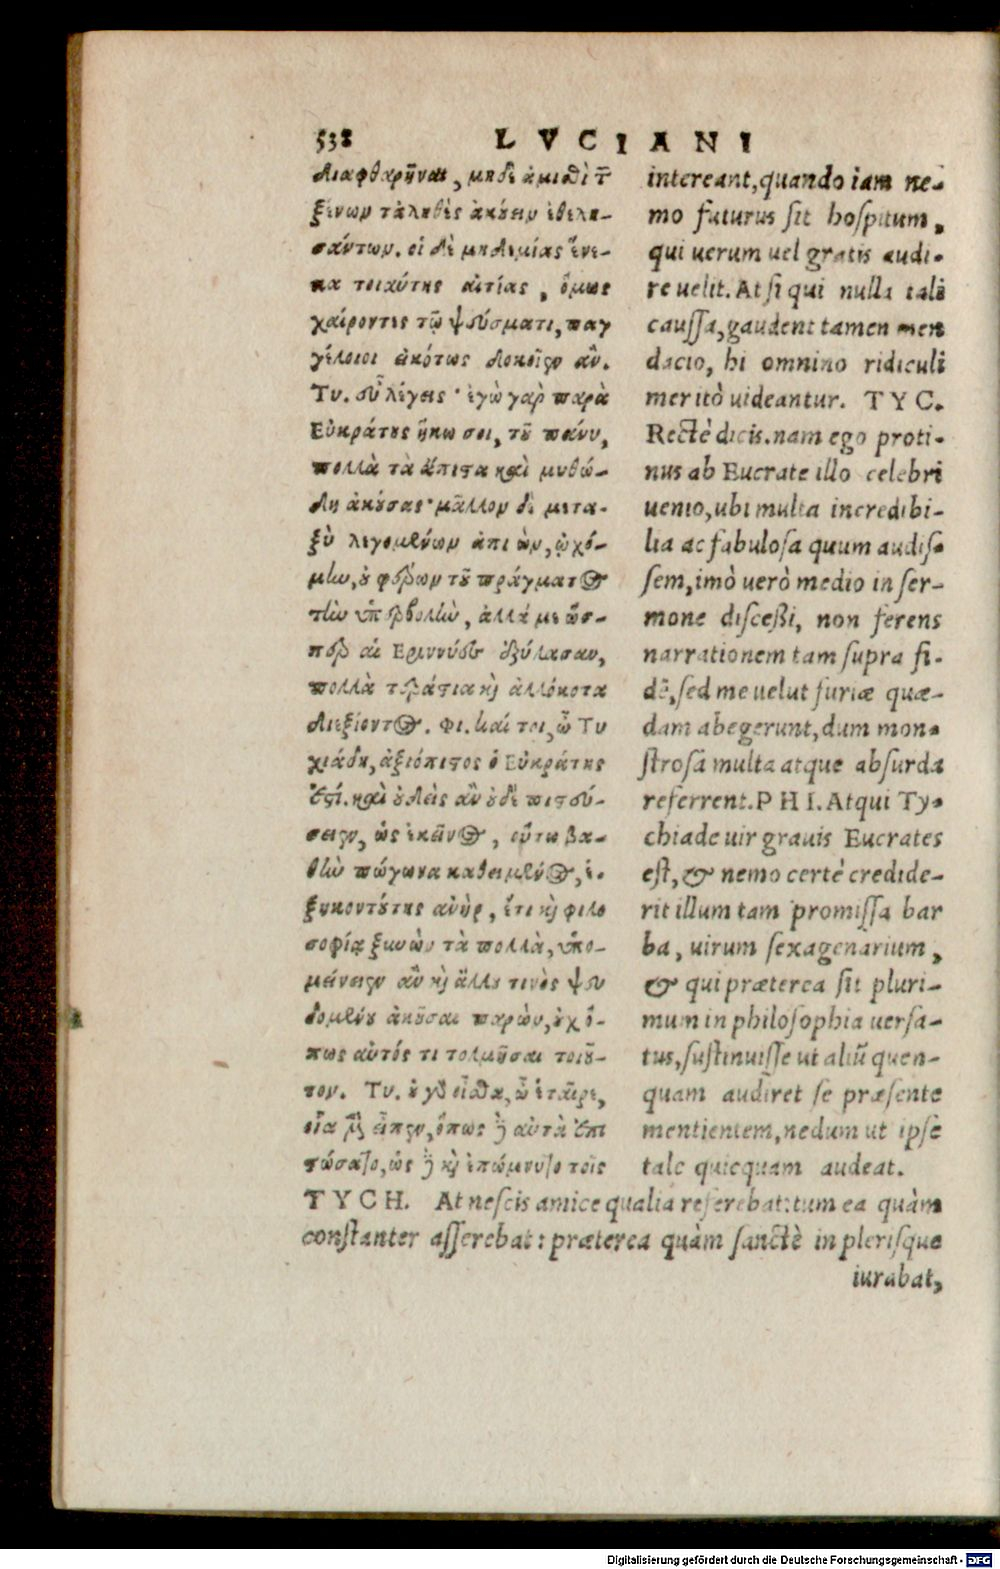 538 LVCIANI
διαφθαρῆναι, μηδὲ ἀμισθὶ τ̃
ξένων τἀληθὲς ἀκούειν ἐθελη-
σάντων. οἱ δὲ μηδεμίας ἕνε-
κα τοιαύτης αἰτίας, ὅμως
χαίροντες τῷ ψεύσματι, παγ
γέλοιοι εἰκότως δοκοῖεν ἄν.
Τυ. εὖ λέγεις· ἐγὼ γὰρ παρὰ
Εὐκράτους ἥκω σοι, τοῦ πάνυ,
πολλὰ τὰ ἄπιστα καὶ μυθώ-
δη ἀκούσας· μᾶλλον δὲ μετα-
ξὺ λεγομένων ἀπιὼν, ᾠχό-
μην, οὐ φέρων τοῦ πράγματος
τὴν ὑπερβολὴν, ἀλλά με ὥσ-
περ αἱ Ἐριννύες ἐξήλασαν,
πολλὰ τεράστια καὶ ἀλλόκοτα
διεξίοντος. Φι. καί τοι, ὦ Τυ
χιάδη, ἀξιόπιστος ὁ Εὐκράτης
ἐστί. καὶ οὐδεὶς ἂν οὐδὲ πιστεύ-
σειεν, ὡς ἐκεῖνος, οὕτω βα-
θὺν πώγωνα καθειμένος, ἑ-
ξηκοντούτης ἀνὴρ, ἔτι καὶ φιλο
σοφίᾳ ξυνὼν τὰ πολλὰ, ὑπο-
μείνειεν ἂν καὶ ἄλλου τινὸς ψευ
δομένου ἀκοῦσαι παρὼν, οὐχ ὅ-
πως αὐτός τι τολμῆσαι τοιοῦ-
τον. Τυ. οὐ γὰρ οἶσθα, ὦ ἑταῖρε,
οἷα μὲν εἶπεν, ὅπως δὲ αὐτὰ ἐπι
στώσατο, ὡς δὲ καὶ ἐπώμνυτο τοῖς
intereant, quando iam ne-
mo futurus sit hospitum,
qui uerum uel gratis audi-
re uelit. At si qui nulla tali
caussa, gaudent tamen men
dacio, hi omnino ridiculi
meritò uideantur. TYC.
Rectè dicis. nam ego proti-
nus ab Eucrate illo celebri
uenio, ubi multa incredibi-
lia ac fabulosa quum audis-
sem, imò uerò medio in ser-
mone discessi, non ferens
narrationem tam supra fi-
dē, sed me uelut furiæ quæ-
dam abegerunt, dum mon-
strosa multa atque absurda
referrent. PHI. Atqui Ty-
chiade uir grauis Eucrates
est, & nemo certè credide-
rit illum tam promissa bar
ba, uirum sexagenarium,
& qui præterea sit pluri-
mum in philosophia uersa-
tus, sustinuisse ut aliū quen-
quam audiret se præsente
mentientem, nedum ut ipse
tale quicquam audeat.
TYCH. At nescis amice qualia referebat: tum ea quàm
constanter asserebat: præterea quàm sanctè in plerisque
iurabat,
Digitalisierung gefördert durch die Deutsche Forschungsgemeinschaft - DFG